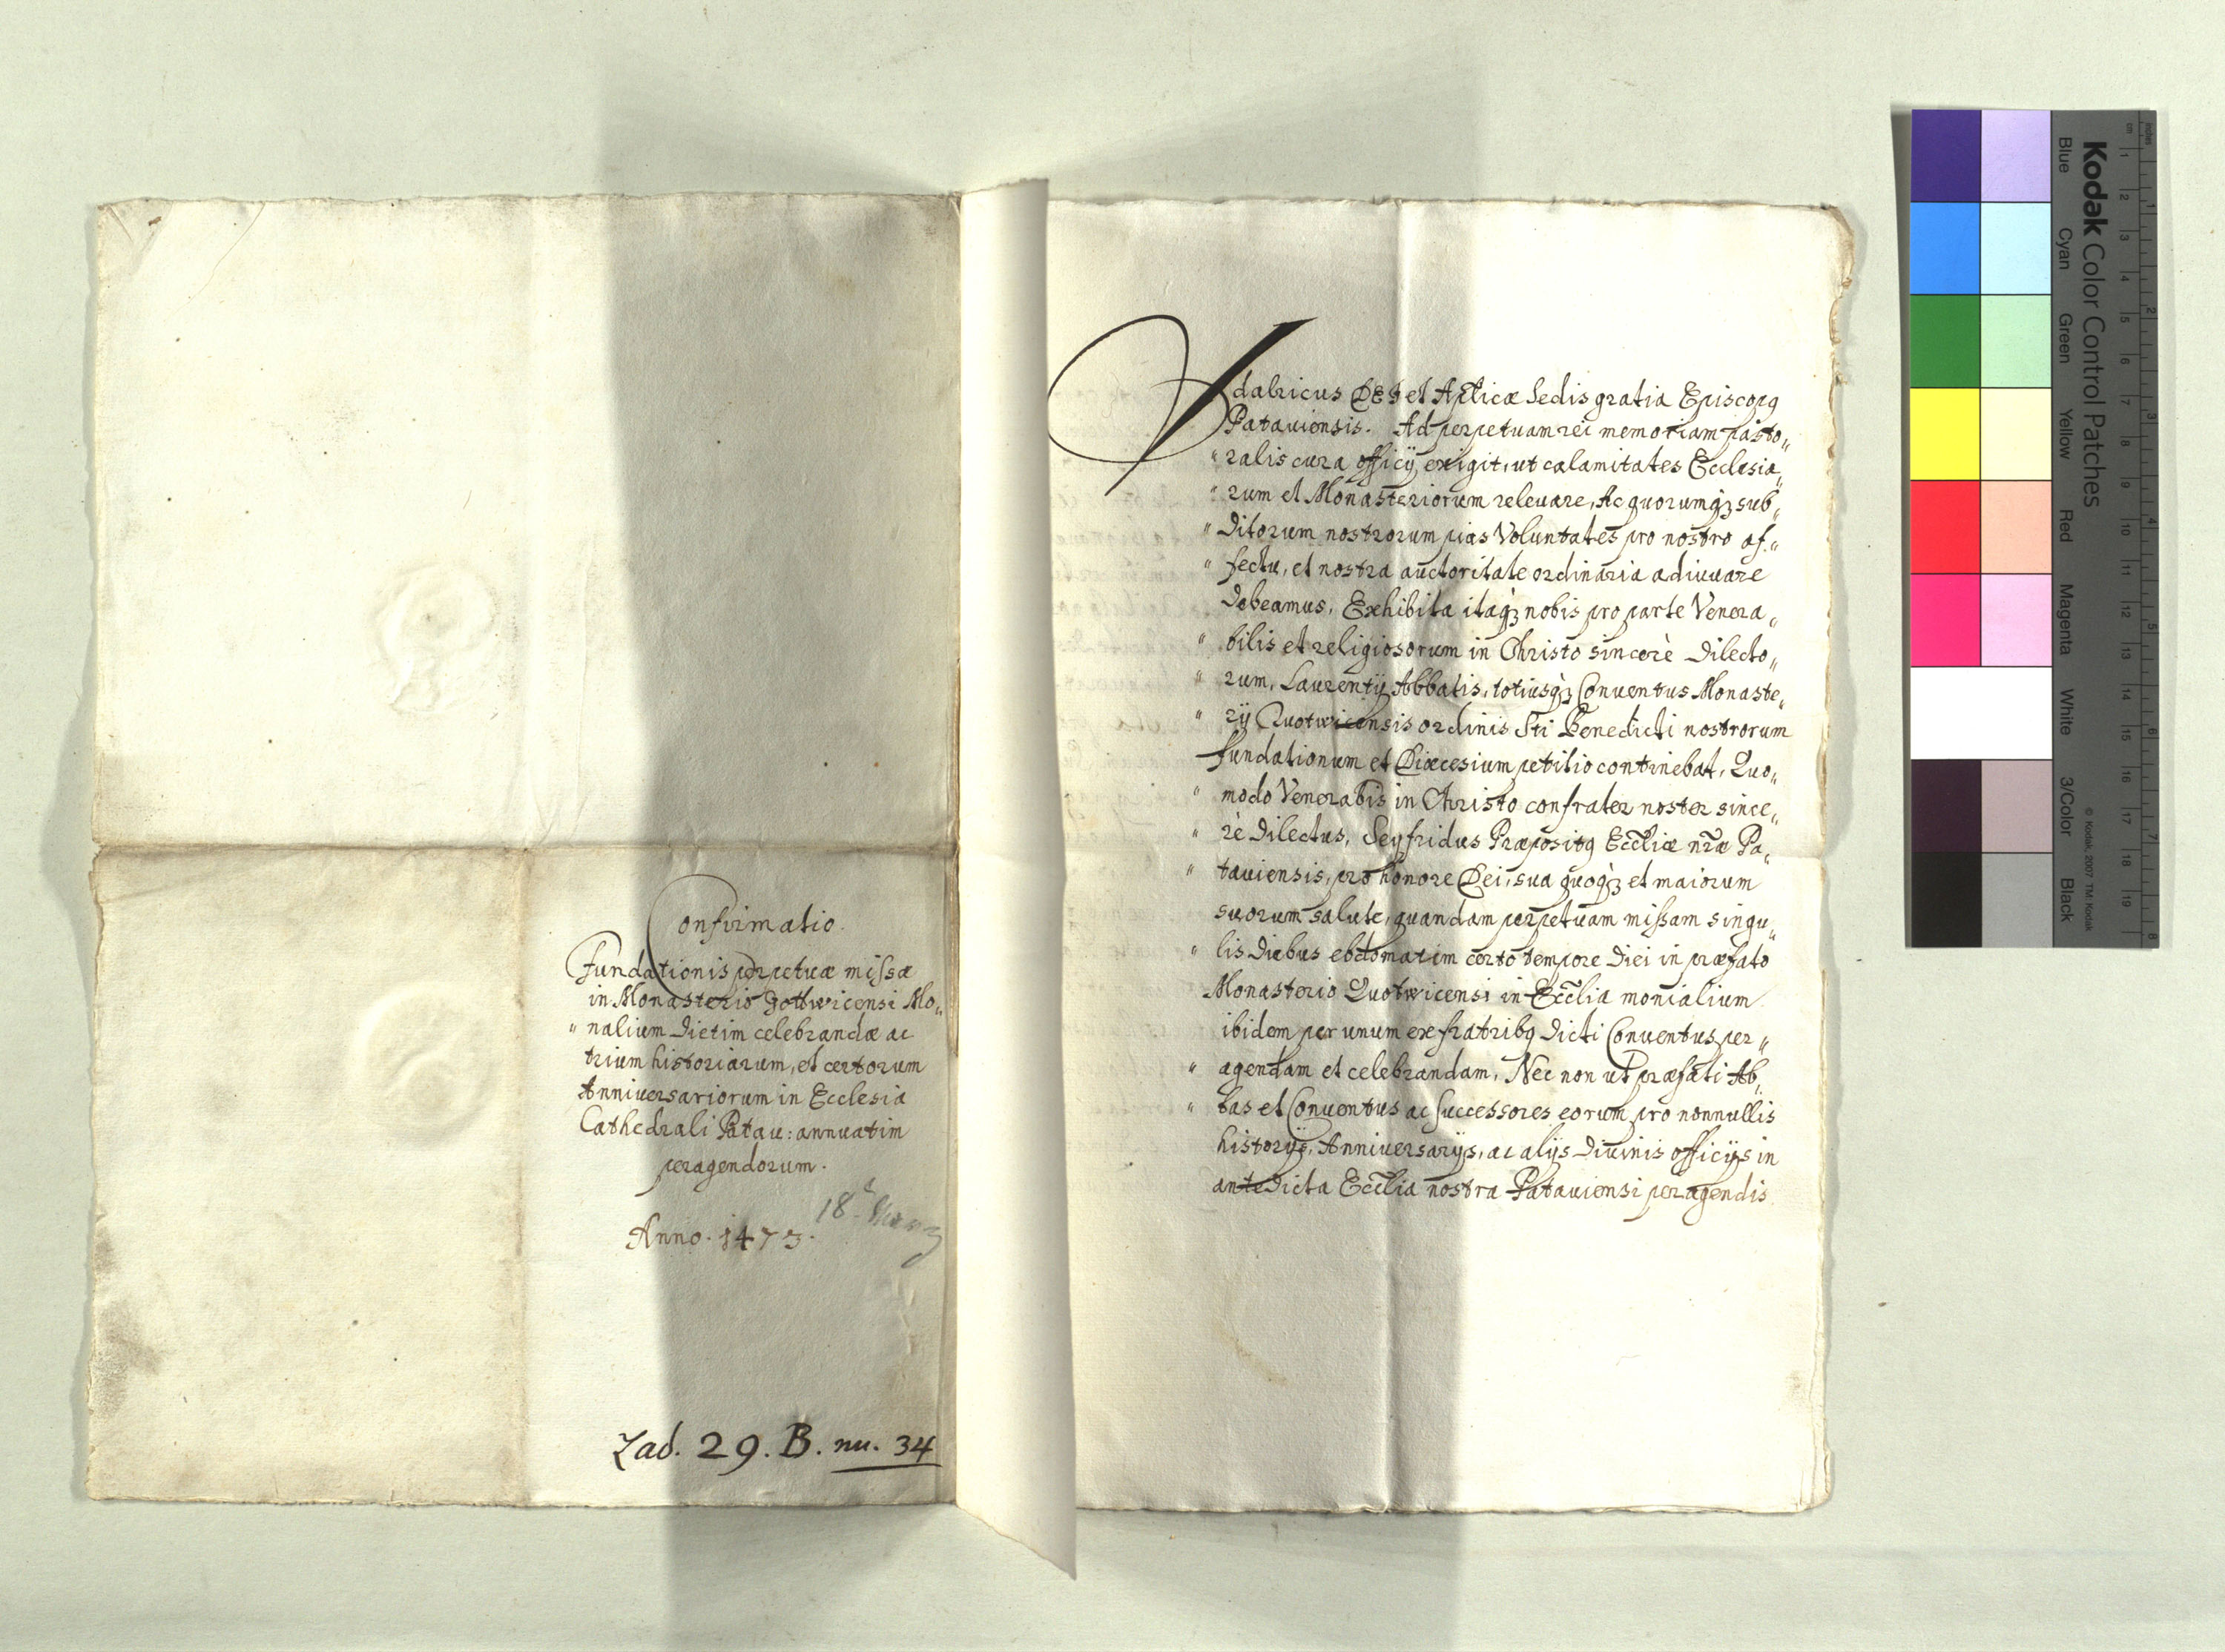 Confirmatio.
Fundationis perpetuæ missæ
in Monasterio Gottwicensi Mo„
„ nalium dietim celebrandæ ac
trium historiarum, et certorum
Anniversariorum in Ecclesia
Cathedrali Patau: annuatim
peragendorum.
18
Anno. 1473.
Lad. 29. B. nu. 34
Vdalricus DEI et Aplicæ Sedis gratia Episcopq
Patauiensis. Ad perpetuam rei memoriam pasto„
„ ralis cura officij exigit, ut calamitates Ecclesia„
„ rum et Monasteriorum releuare, Ac quorumqꝫ sub„
„ ditorum nostrorum pias Voluntates pro nostro af„
„ fectu, et nostra auctoritate ordinaria adiuuare
debeamus, Exhibita itaqꝫ nobis pro parte Venera„
„ bilis et religiosorum in Christo sincerè dilecto„
„ rum, Laurentij Abbatis, totiusqꝫ Conuentus Monaste„
„ rij Quotwicensis ordinis Sti Benedicti nostrorum
fundationum et Diæcesium petitio continebat, Quo„
„ modo Venerabis in Christo confrater noster since„
„ rè dilectus, Seyfridus Præpositq Eccliæ nræ Pa„
„ tauiensis, pro honore Dei, sua quoqꝫ et maiorum
suorum salute, quandam perpetuam missam singu„
„ lis diebus ebdomatim certo tempore diei in præfato
Monasterio Quotwicensi in Ecclia monialium
ibidem per unum ex fratribq dicti Conuentus per„
„ agendam et celebrandam, Nec non ut præfati Ab„
„ bas et Conuentus ac successores eorum pro nonnullis
historijs, Anniuersarijs, ac alijs diuinis officijs in
antedicta Ecclia nostra Patauiensi peragendis
Kodak Color Control Patches
Blue Cyan Green Yellow Red Magenta White 3/Color Black
© Kodak, 2007 TM: Kodak
inches 1 2 3 4 5 6 7 8
cm 1 2 3 4 5 6 7 8 9 10 11 12 13 14 15 16 17 18 19